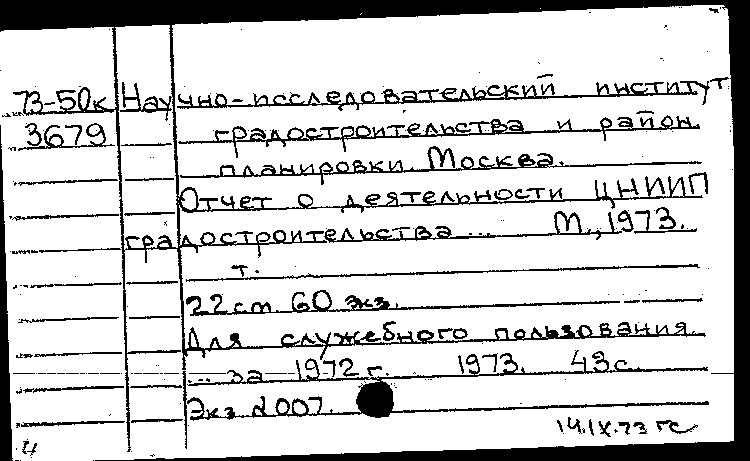 73-50к Научно-исследовательский институт
3679 градостроительства и район.
планировки. Москва.
Отчет о деятельности ЦНИИП
градостроительства ... М., 1973.
т.
22 см. 60 экз.
Для служебного пользования.
... за 1972 г. 1973. 43 с.
Экз. №007.
14.IX.73 гс
4